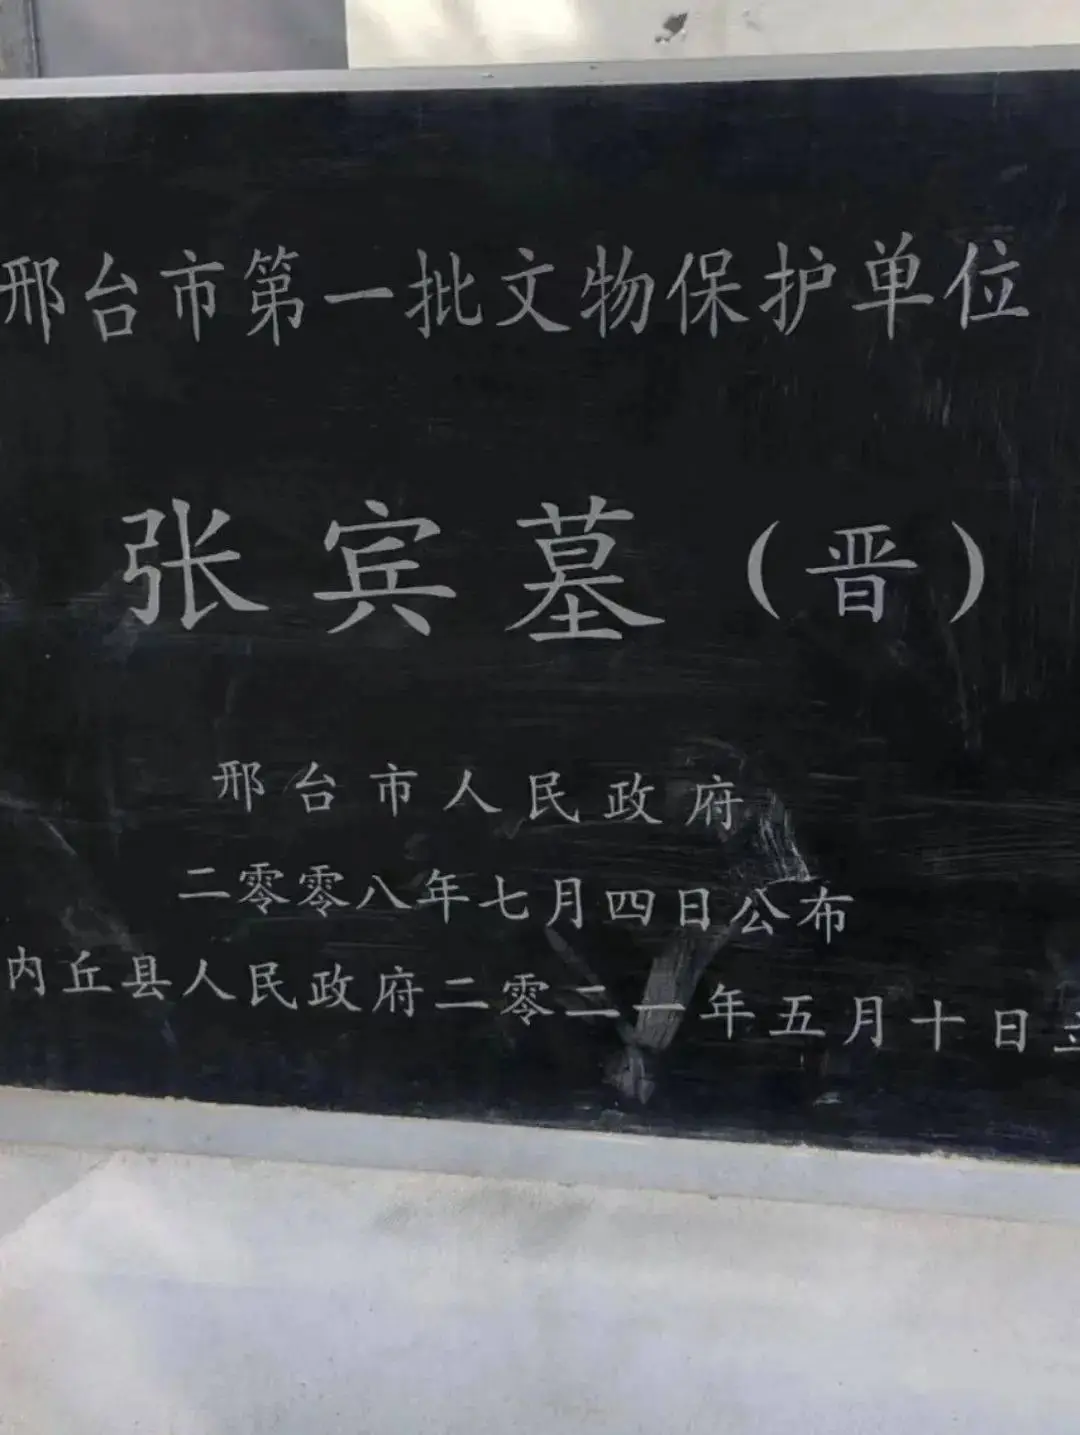 邢台市第一批文物保护单位
张宾墓（晋）
邢台市人民政府
二零零八年七月四日公布
内丘县人民政府二零二一年五月十日